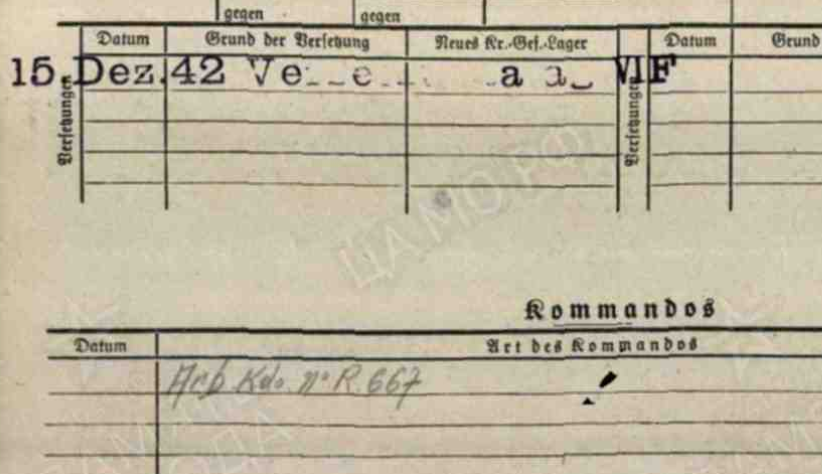 gegen gegen
Datum Grund der Versetzung Neues Kr.-Gef.-Lager Datum Grund
15 Dez.42 VIF
Versetzungen Versetzungen
ЦАМО.РФ
Kommandos
Datum Art des Kommandos
Arb. Kdo. n° R. 667